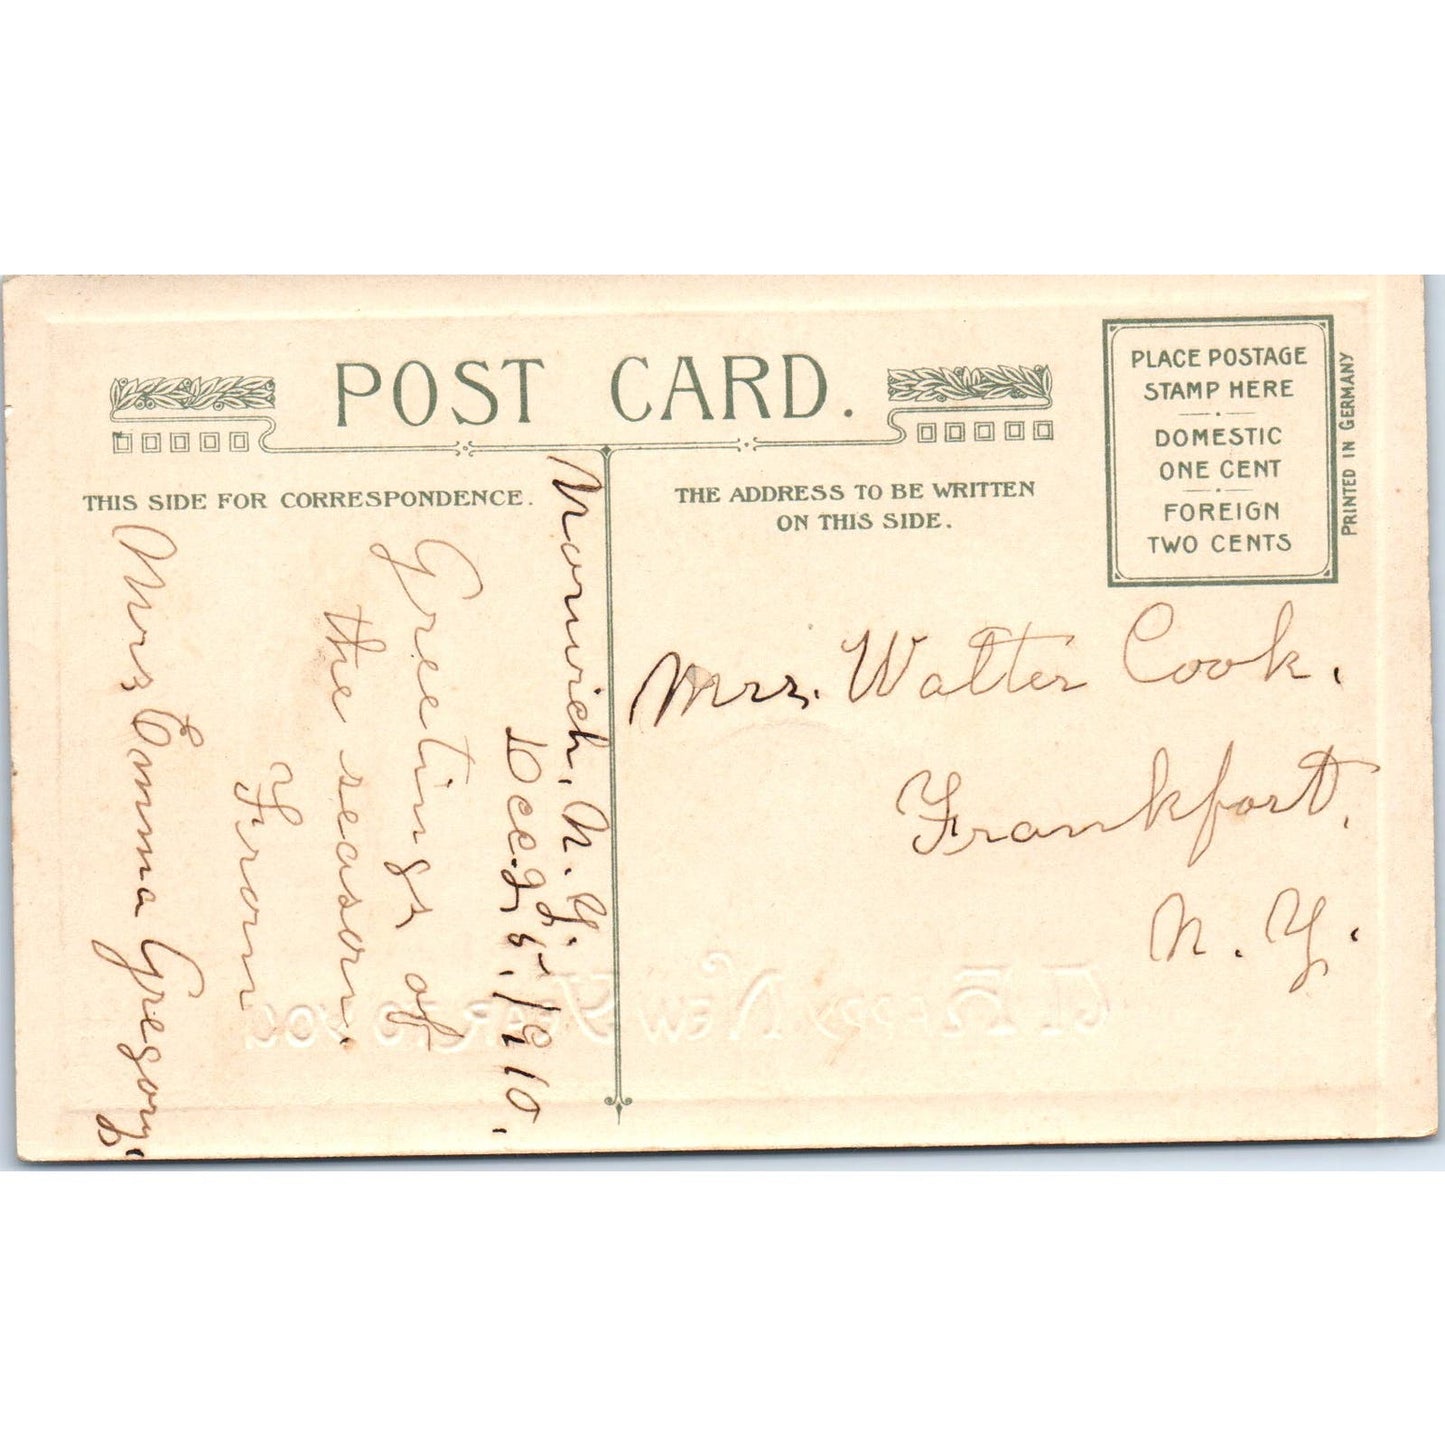 POST CARD.
THIS SIDE FOR CORRESPONDENCE.
Norwich, N.Y.
Dec. 25, 1910.
Greetings of
the season.
From
Mrs Emma Gregory.
THE ADDRESS TO BE WRITTEN
ON THIS SIDE.
PLACE POSTAGE
STAMP HERE
DOMESTIC
ONE CENT
FOREIGN
TWO CENTS
PRINTED IN GERMANY
Mrs. Walter Cook.
Frankfort,
N. Y.
A Happy New Year to you